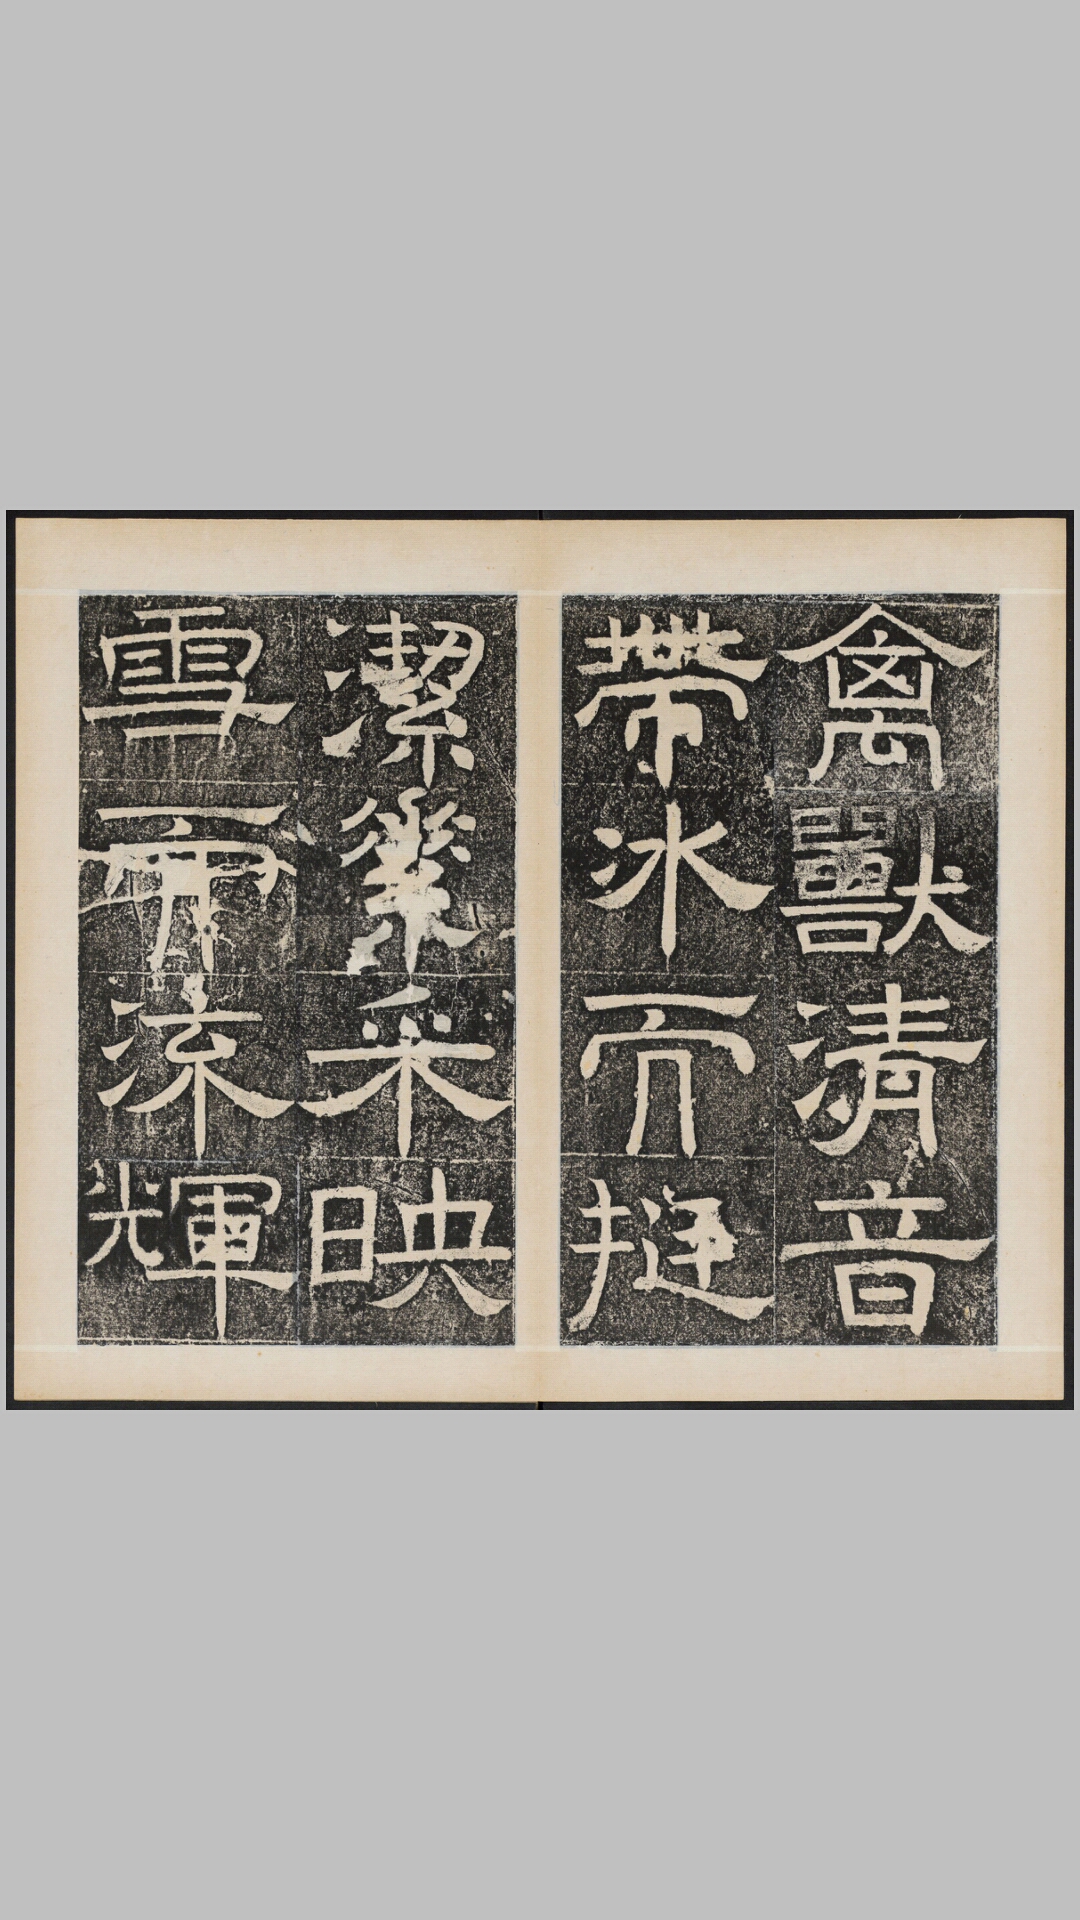 禽獸清音
帶冰而挺
潔粲采映
雪而流輝